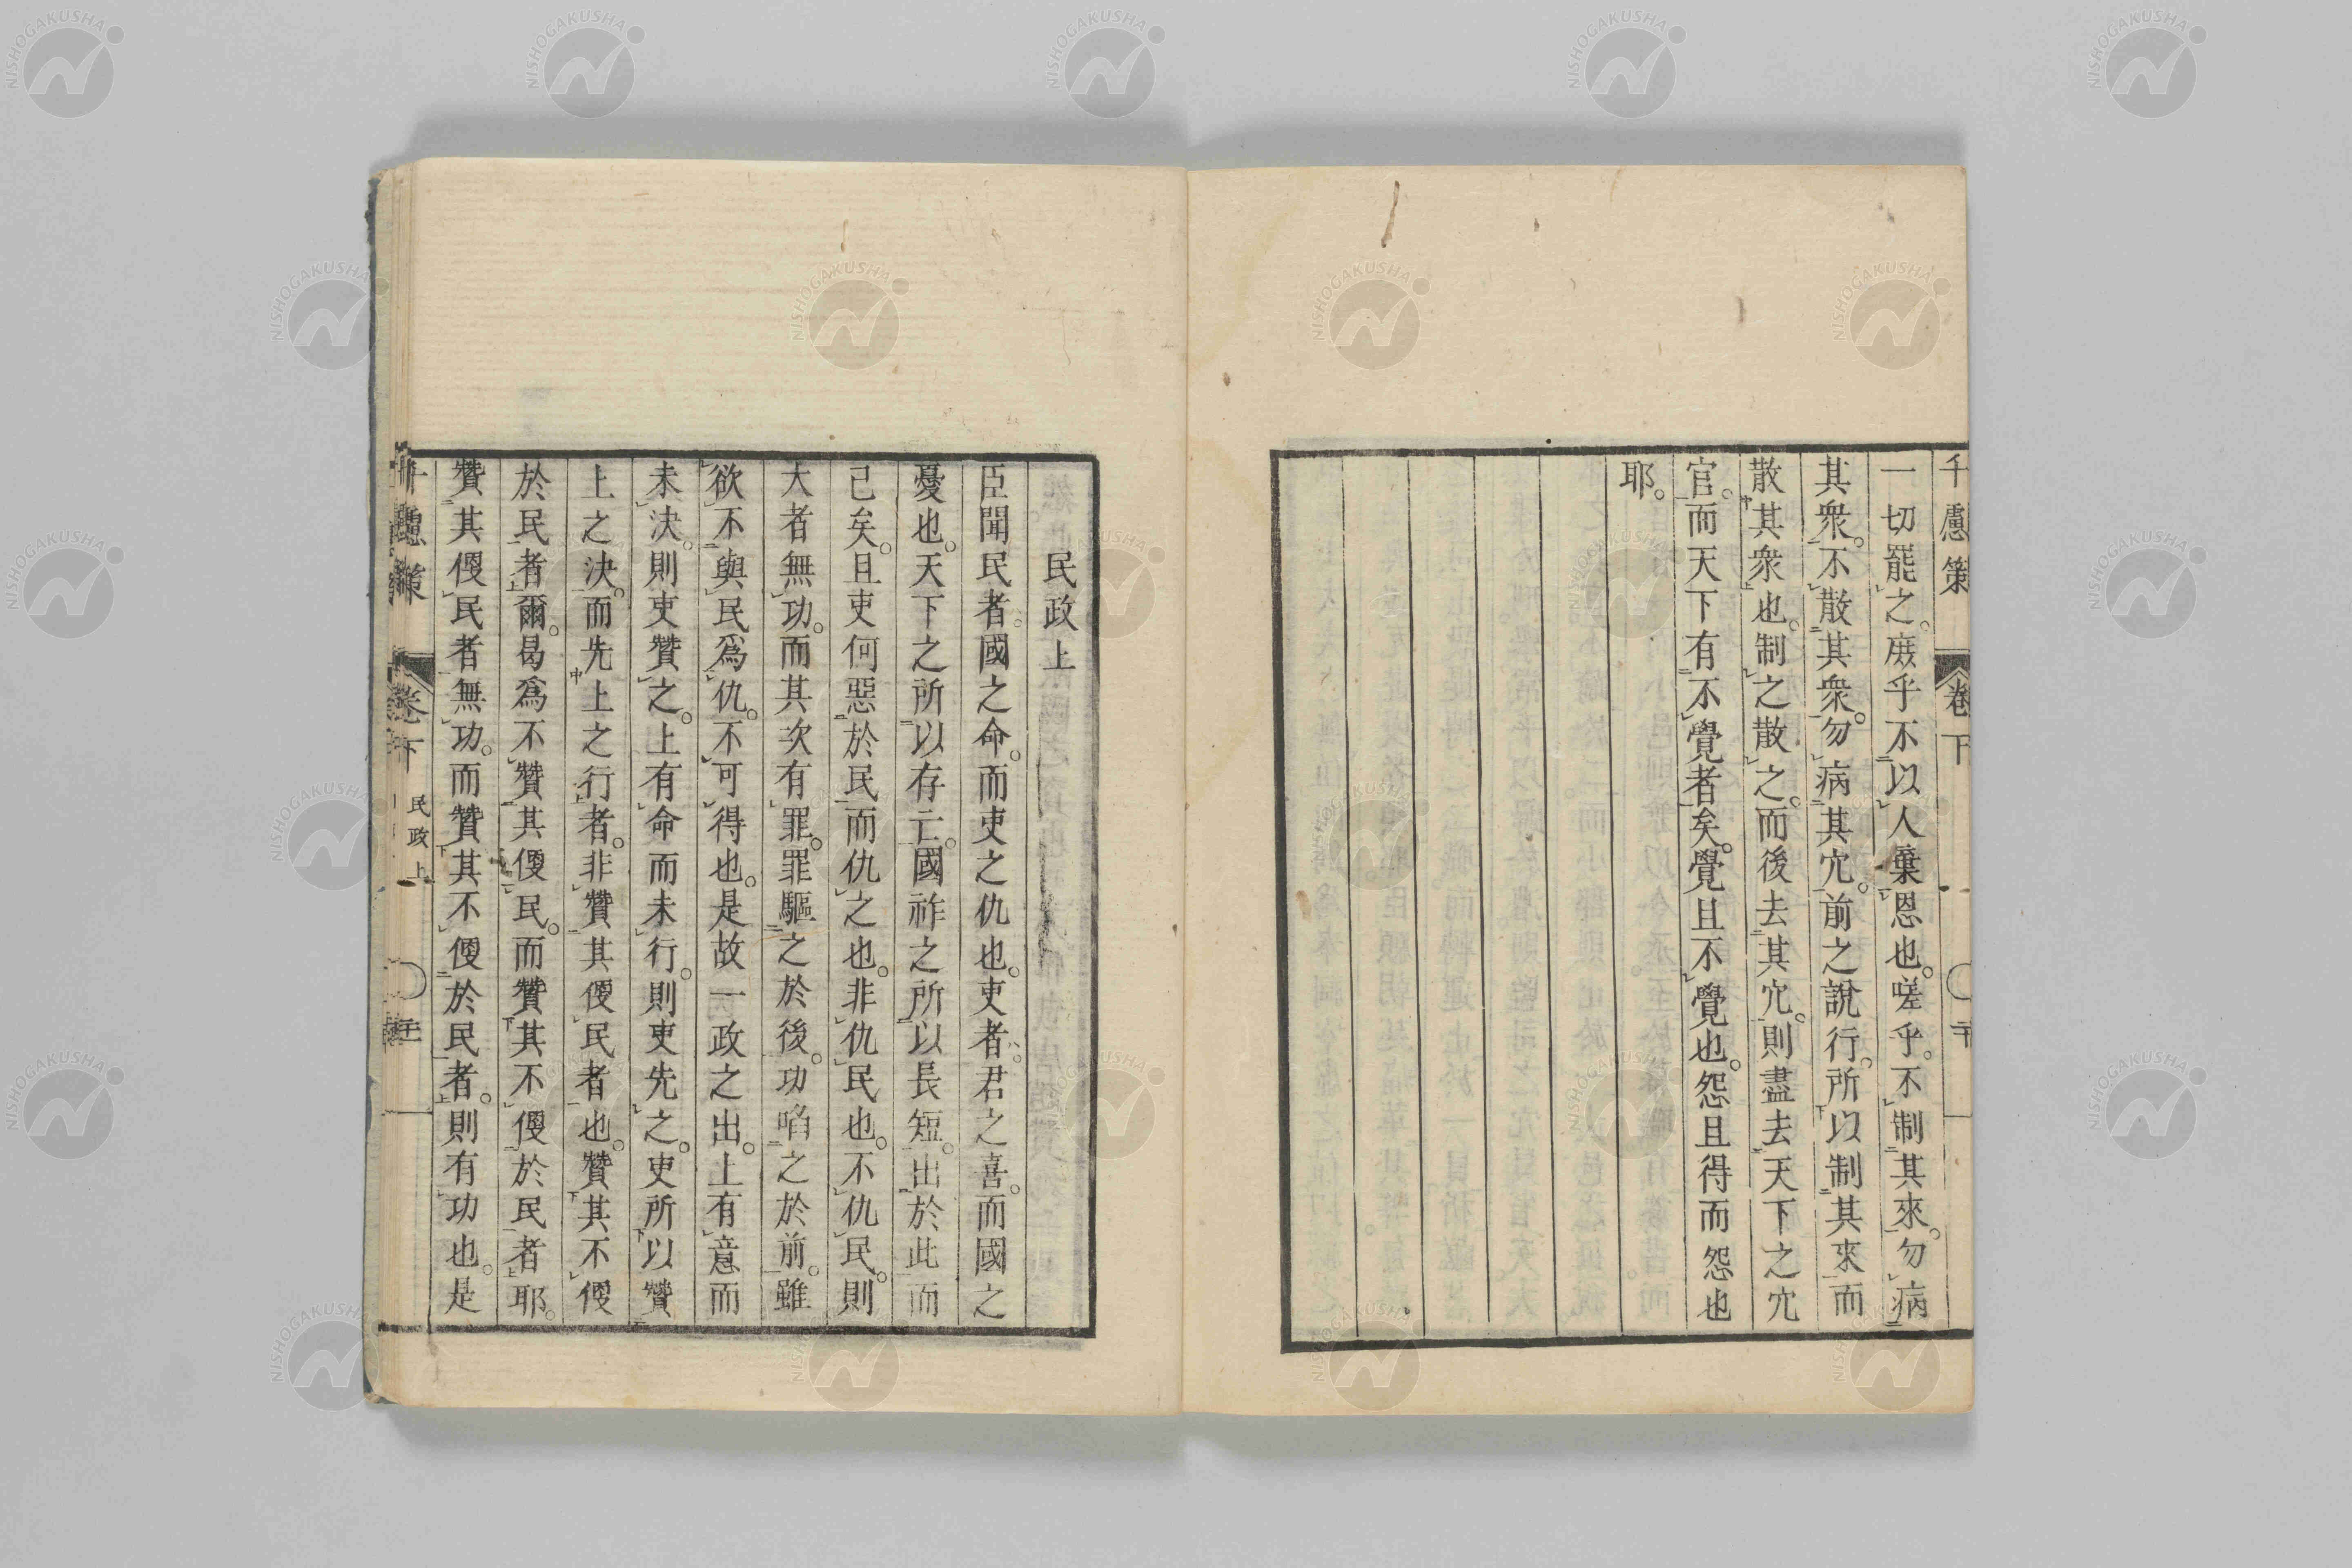 千慮策 卷下 二十
一切罷之。庻乎不以人棄恩也。嗟乎。不制其來。勿病
其衆。不散其衆。勿病其宂。前之說行。所以制其來而
散其衆也。制之散之。而後去其宂。則盡去天下之宂
官。而天下有不覺者矣。覺且不覺也。怨且得而怨也
耶。
民政上
臣聞民者。國之命。而吏之仇也。吏者。君之喜。而國之
憂也。天下之所以存亡。國祚之所以長短。出於此而
已矣。且吏何惡於民而仇之也。非仇民也。不仇民。則
大者無功。而其次有罪。罪驅之於後。功啗之於前。雖
欲不與民爲仇。不可得也。是故一政之出。上有意而
未決。則吏贊之。上有命而未行。則吏先之。吏所以贊
上之決。而先上之行者。非贊其便民者也。贊其不便
於民者爾。曷爲不贊其便民。而贊其不便於民者耶。
贊其便民者無功。而贊其不便於民者。則有功也。是
千慮策 卷下 民政上
NISHOGAKUSHA